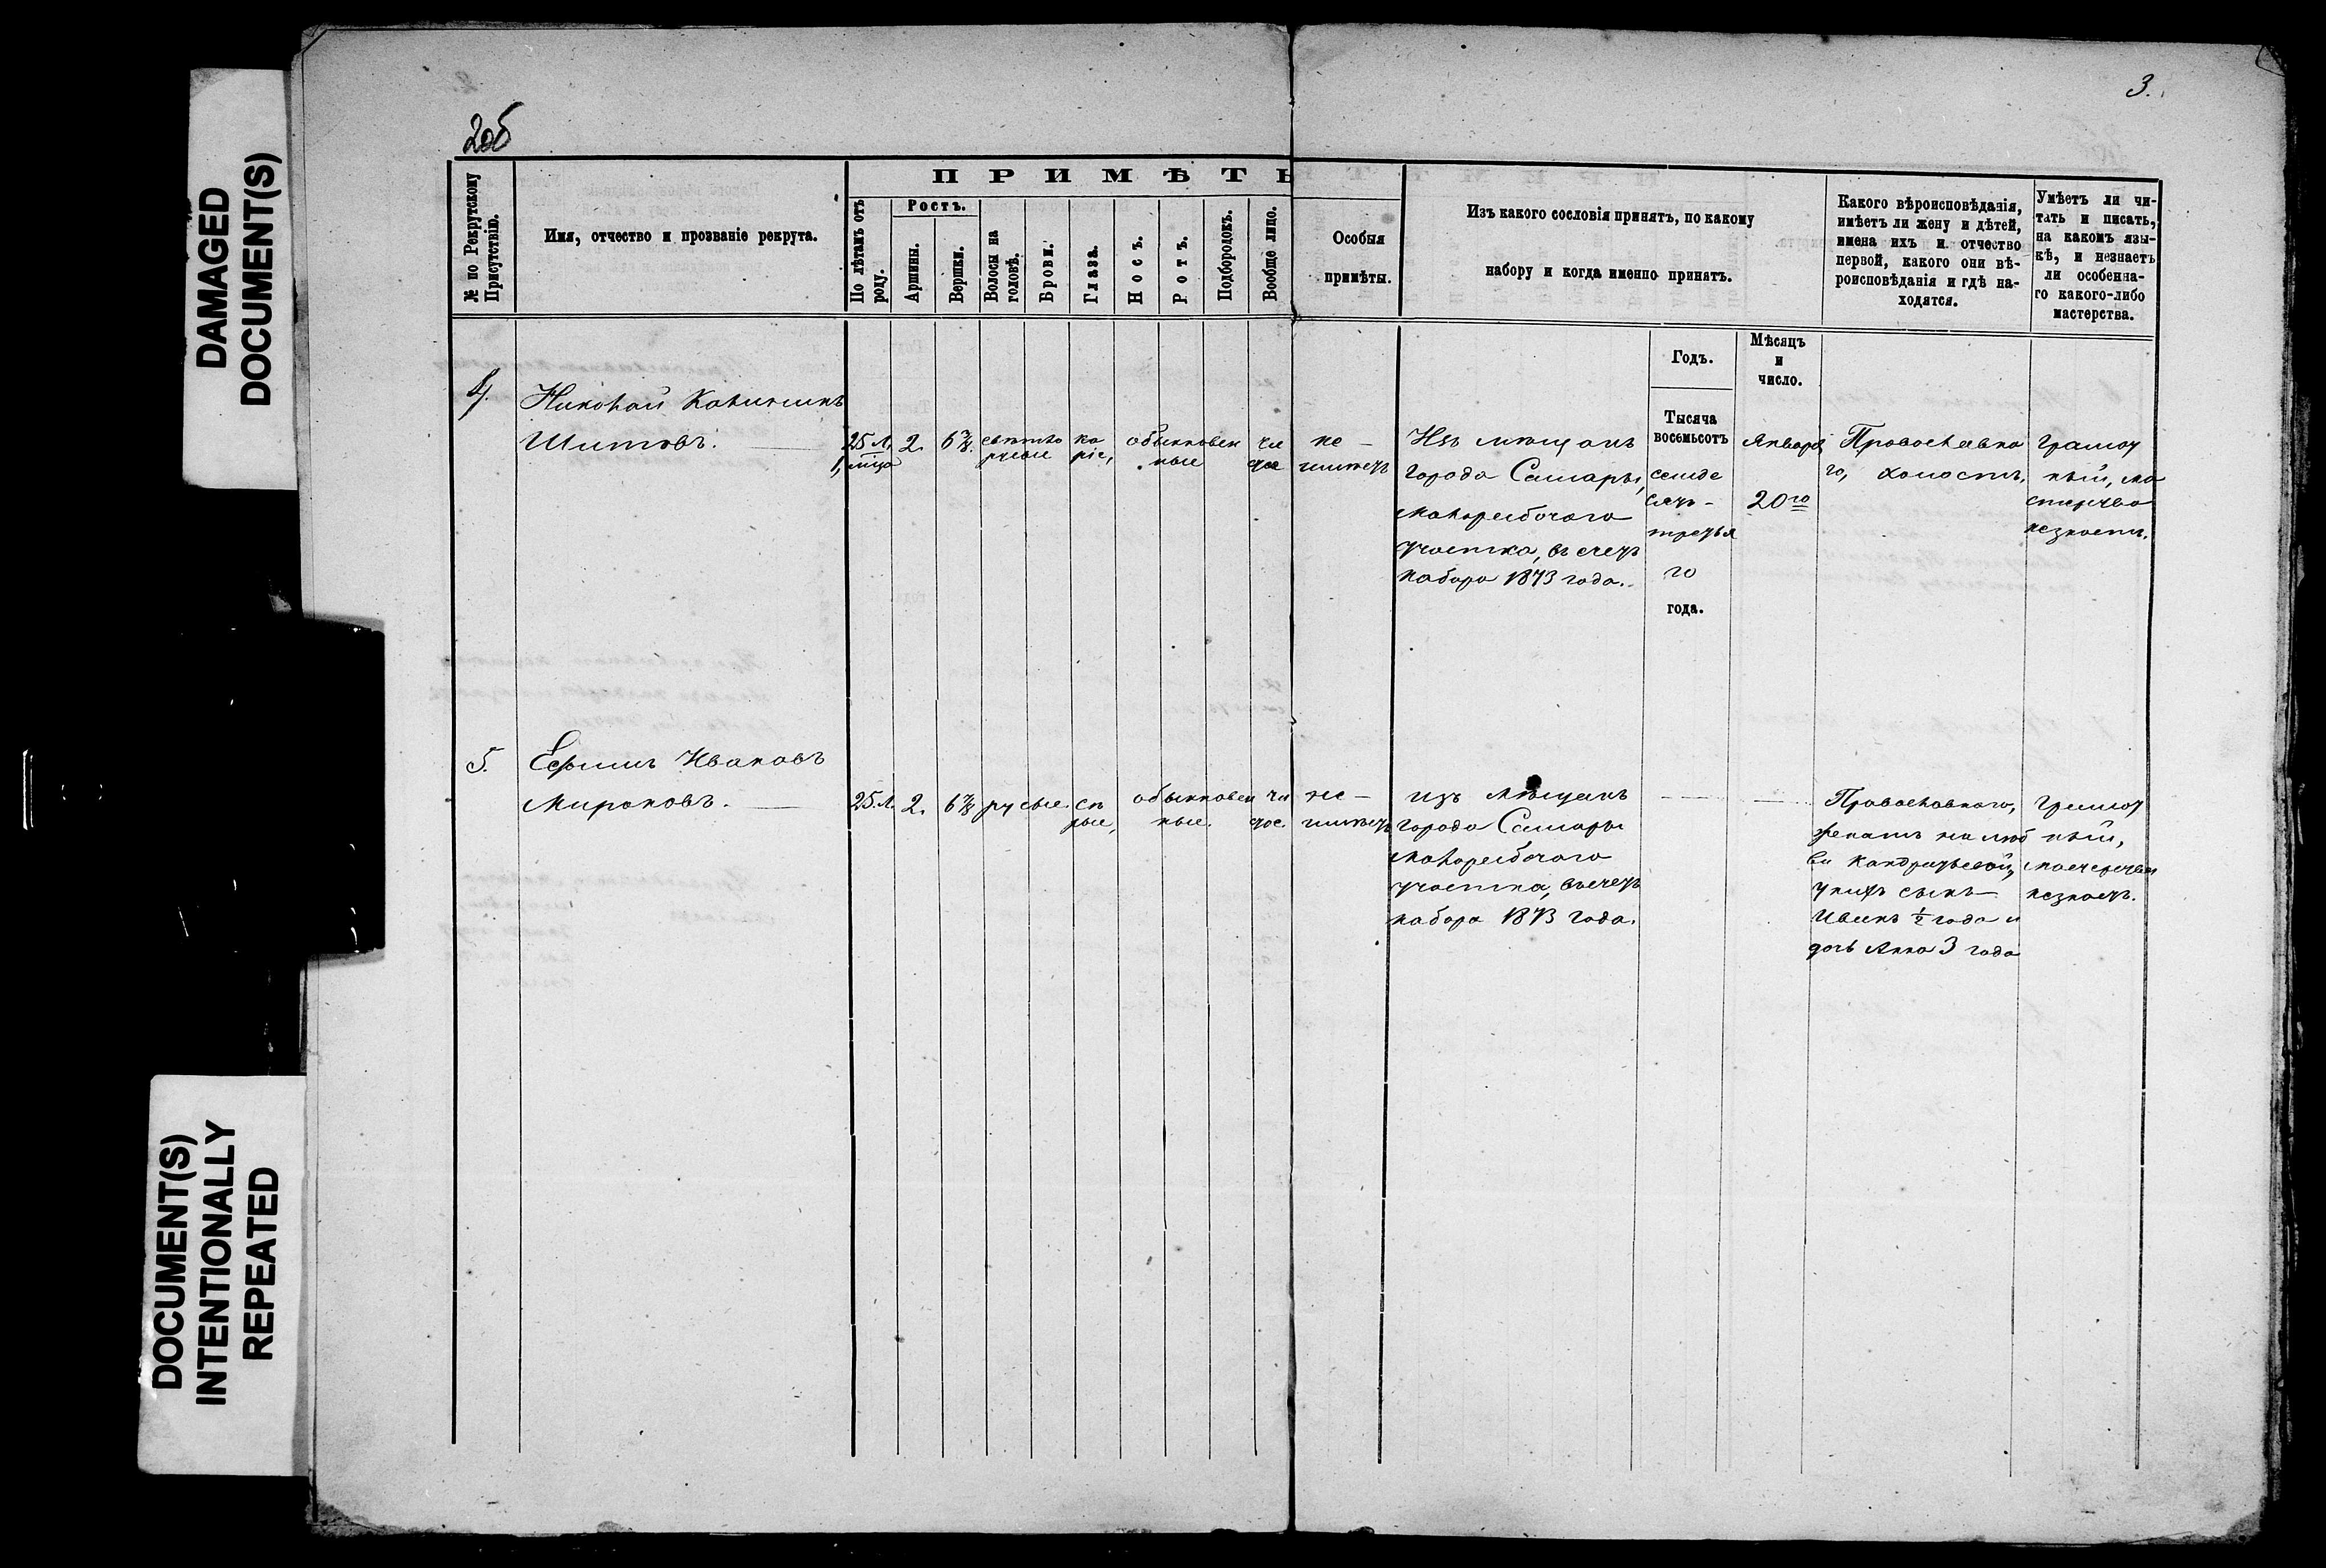 DAMAGED
DOCUMENT(S)
DOCUMENT(S)
INTENTIONALLY
REPEATED
2об
3.
№ по Рекрутскому
Присутствію.
Имя, отчество и прозваніе рекрута.
ПРИМѢТЫ
По лѣтамъ отъ
роду.
Ростъ.
Аршины.
Вершки.
Волосы на
головѣ.
Брови.
Глаза.
Носъ.
Ротъ.
Подбородокъ.
Вообще лицо.
Особыя
примѣты.
Изъ какого сословія принятъ, по какому
набору и когда именно принятъ.
Какого вѣроисповѣданія,
имѣетъ ли жену и дѣтей,
имена ихъ и отчество
первой, какого они вѣ-
роисповѣданія и гдѣ на-
ходятся.
Умѣетъ ли чи-
тать и писать,
на какомъ язы-
кѣ, и незнаетъ
ли особенна-
го какого-либо
мастерства.
Годъ.
Мѣсяцъ
и
число.
4.
Николай Калининъ
Шитовъ.
25 л.
1, мѣс.
2.
6 7/8.
свѣтло
русые
ка
ріе,
обыкновен
ные
чи
стое
не —
имѣетъ
Изъ мѣщанъ
города Самары,
малорабочаго
участка, въ счетъ
набора 1873 года.
Тысяча
восемьсотъ
семьде
сятъ-
третья
го
года.
Января
20го
Православна
го, холостъ.
грамот
ный, ма
стерства
незнаетъ.
5.
Ефимъ Ивановъ
Мироновъ.
25. л.
2.
6 7/8
русые.
сѣ
рые,
обыкновен
ные.
чи
стое.
не —
имѣетъ
изъ мѣщанъ
города Самары
малорабочаго
участка, въ счетъ
набора 1873 года.
Православнаго,
женатъ на Люб
ви Кандратьевой,
у нихъ сынъ
Иванъ 1/2 года и
дочь Анна 3 года
грамот
ный,
мастерства
незнаетъ.